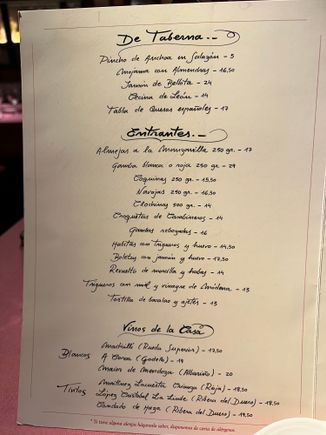 De Taberna.-
Pincho de Anchoa en Salazón - 5
Mojama con Almendras - 16,50
Jamón de Bellota - 24
Cecina de León - 14
Tabla de Quesos españoles - 17
Entrantes.-
Almejas a la 250 gr. - 17
Gamba blanca o roja 250 gr - 29
Coquinas 250 gr - 15,50
Navajas 250 gr. - 16,50
Clochinas 500 gr. - 14
Croquetas de Carabineros - 14
Gambas rebozadas - 16
Habitas con Trigueros y huevo - 14,50
Boletus con jamón y huevo - 17,50
Revuelto de morcilla y habas - 14
Trigueros con miel y vinagre de Módena - 13
Tortilla de bacalao y ajetes - 13
Vinos de la Casa
Blancos
Martivillí (Rueda Superior) - 17,50
A Coroa (Godello) - 19
Maior de Mendoza (Albariño) - 20
Tintos
Martínez Lacuesta Crianza (Rioja) - 18,50
López Cristobal La Linde (Ribera del Duero) - 18,50
Condado de Haza (Ribera del Duero) - 19,50
* Si tiene alguna alergia háganoslo saber, disponemos de carta de alérgenos